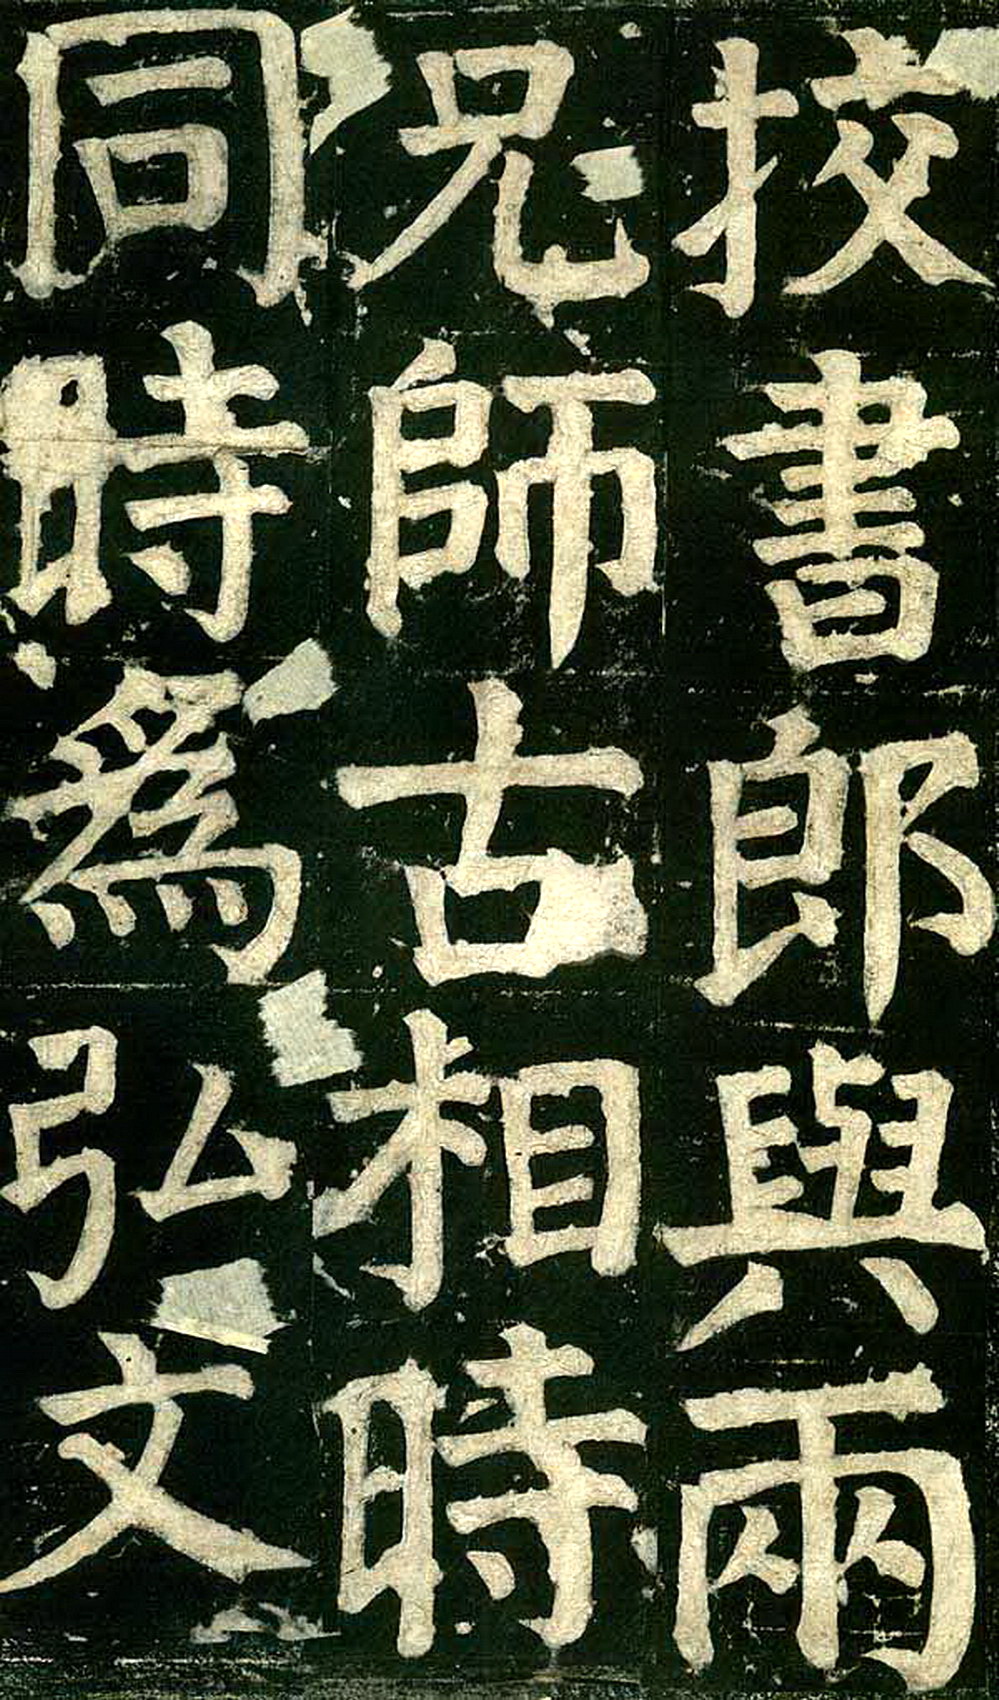 挍書郎與兩
兄師古相時
同時爲弘文